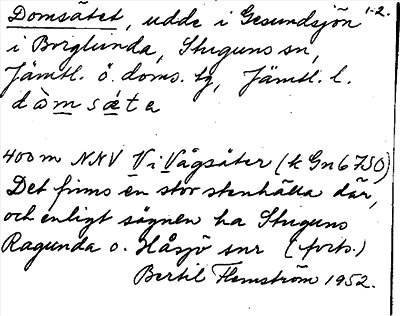 Domsätet, udde i Gesundsjön 1-2.
i Borglunda, Stuguns sn,
Jämtl. ö. doms. tg, Jämtl. l.
dòmsǽta
400 m NNV V i Vågsäter (k Gn 6 750)
Det finns en stor stenhälla där,
och enligt sägnen ha Stuguns
Ragunda o. Håsjö snr (forts.)
Bertil Flemström 1952.